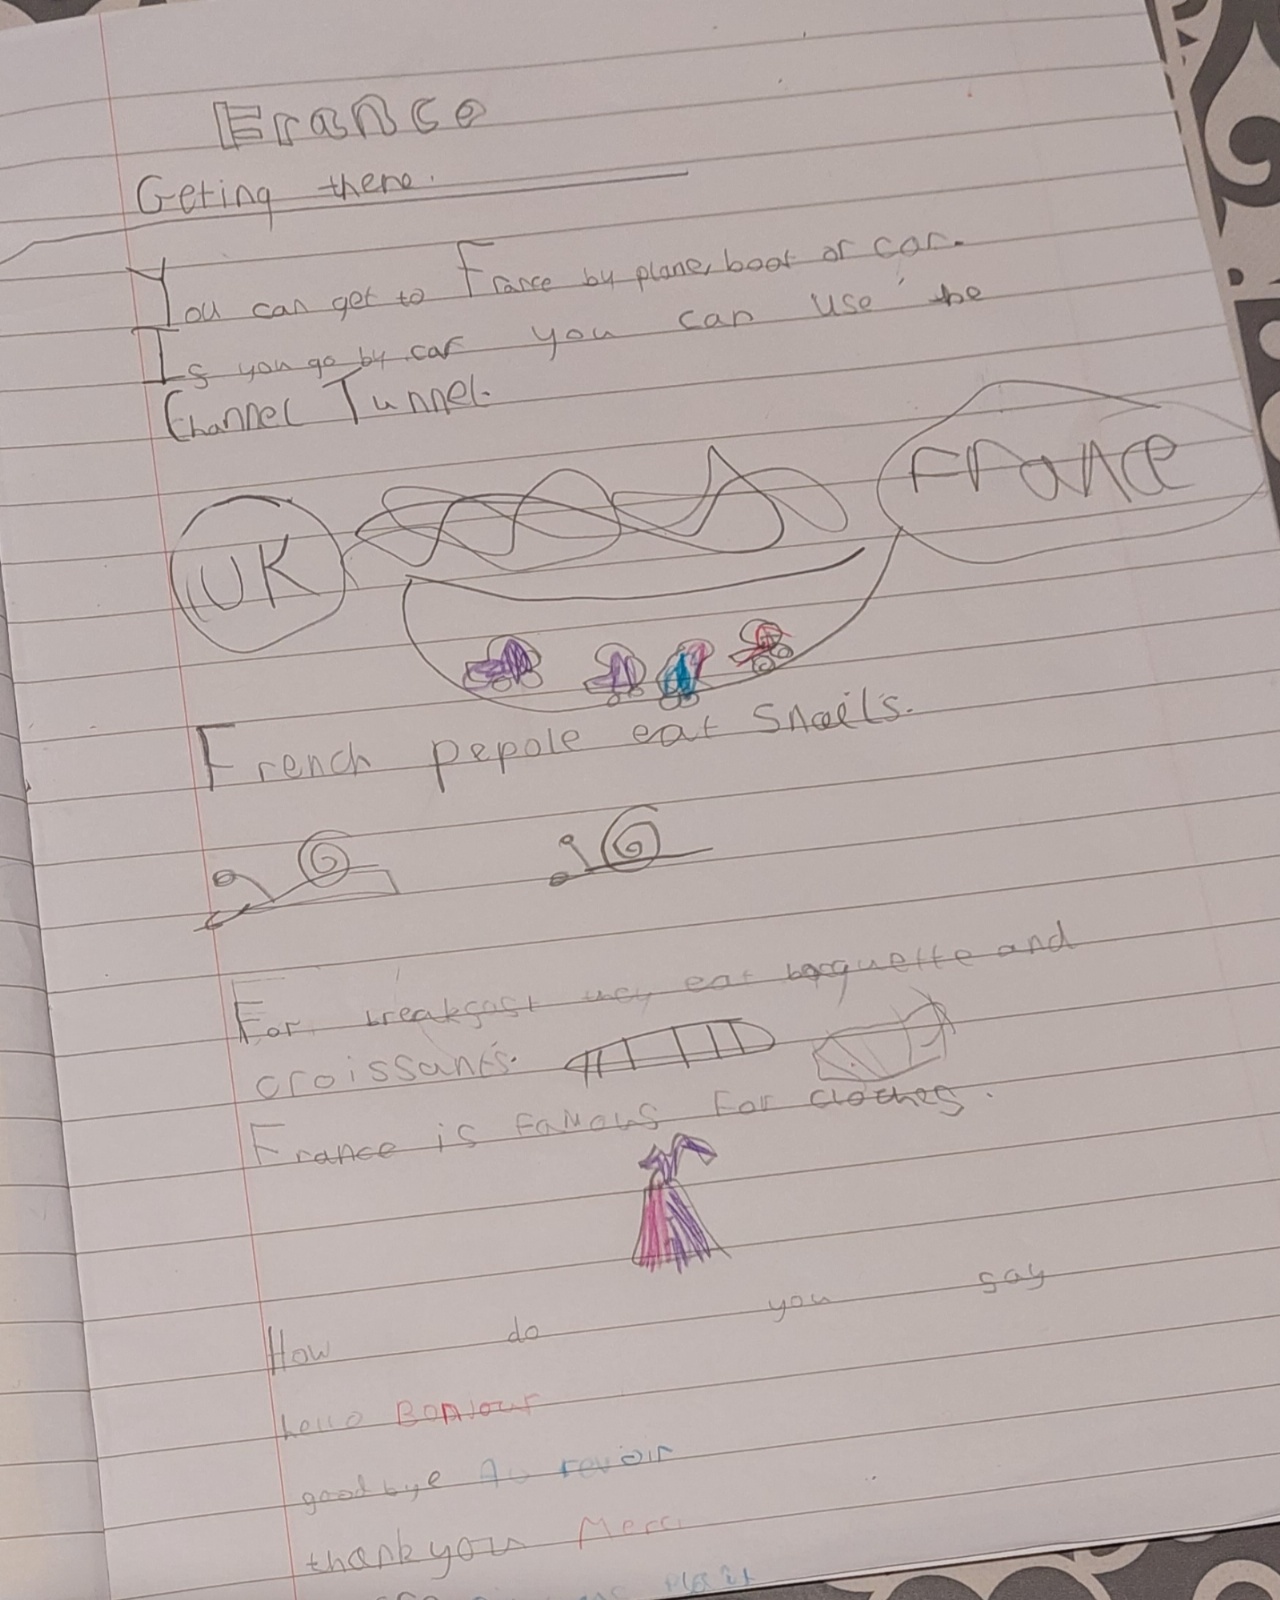 France
Geting there.
You can get to France by plane, boat or car.
If you go by car you can use the
Channel Tunnel.
UK
France
French pepole eat snails.
For breakfast they eat bagquette and
croissants.
France is famous for cloches.
How do you say
hello Bonjour
goodbye Au revoir
thankyou Merci
plait